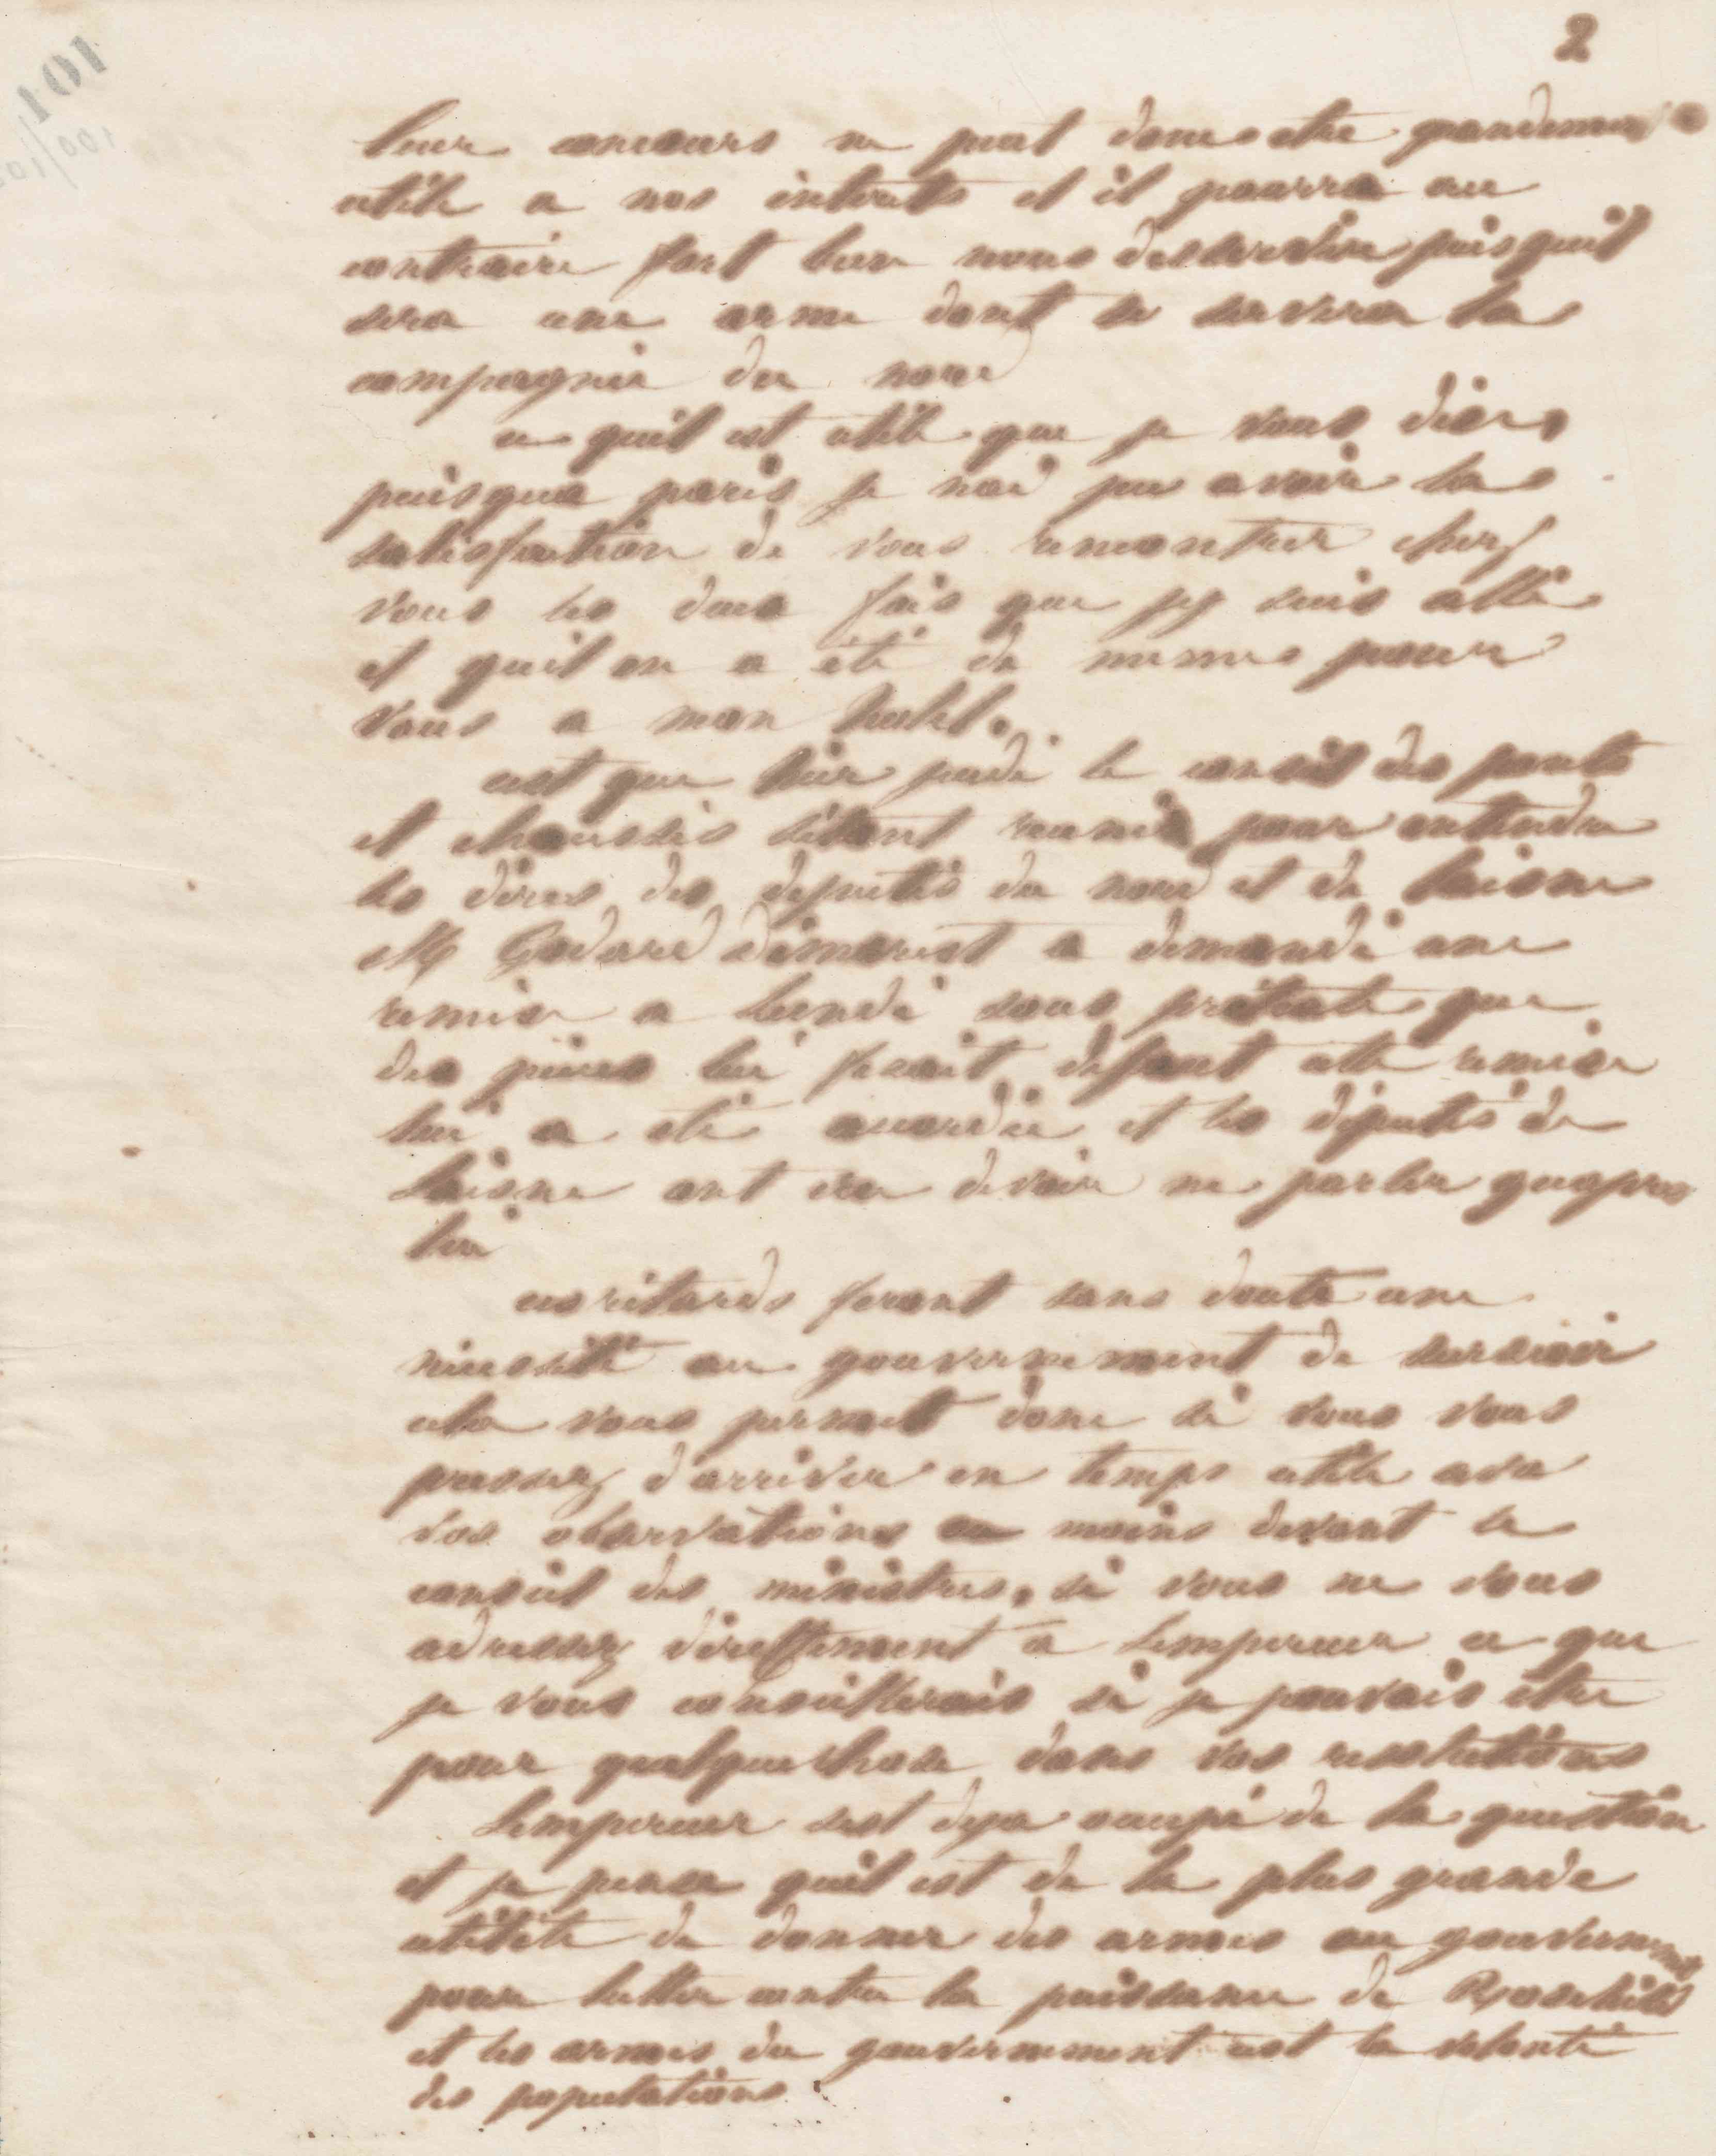 2
101
leur concours ne peut donc etre grandement
utile a nos interets et il pourra au
contraire fort bien nous desservir puisquil
sera une arme dont se servira la
compagnie du nord
ce quil est utile que je vous dise,
puisqua paris je nai pu avoir la
satisfaction de vous rencontrer chez
vous les deux fois que jy suis allé
et quil en a été de meme pour
vous a mon hotel.
cest que hier jeudi le conseil des ponts
et chaussées sétant reuni pour entendre
les dires des deputés du nord et de laisne
Mr Godard démarest a demandé une
remise a lundi sous prétexte que
des pièces lui fesait défaut cette remise
lui a été accordée et les députés de
Laisne ont cru devoir ne parler quapres
lui
ces retards feront sans doute une
nécessité au gouvernement de surseoir
cela vous permet donc si vous vous
pressez d'arriver en temps utile avec
vos observations au moins devant le
conseil des ministres, si vous ne vous
adressez directement a Lempereur ce que
je vous conseillerais si je pouvais etre
pour quelque chose dans vos resolutions
Lempereur sest deja occupé de la question
et je pense quil est de la plus grande
utilité de donner des armes au gouvernement
pour lutter contre la puissance de Roschild
et les armes du gouvernement cest la volonté
des populations